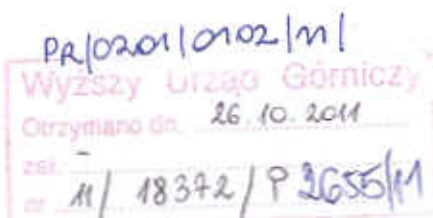 PR/0201/0102/11/
Wyższy Urząd Górniczy
Otrzymano dn. 26.10.2011
zał. -
nr 11/ 18372 / P 2655/11